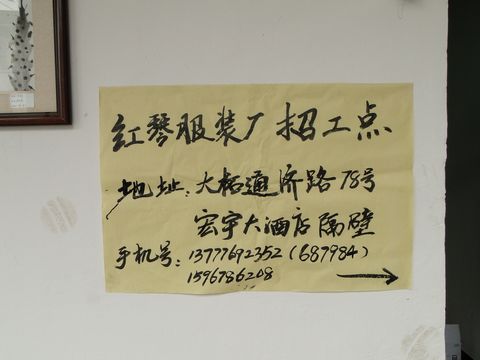 红琴服装厂招工点
地址：大榕通济路78号
宏宇大酒店隔壁
手机号：13777692352（687984）
1596786208